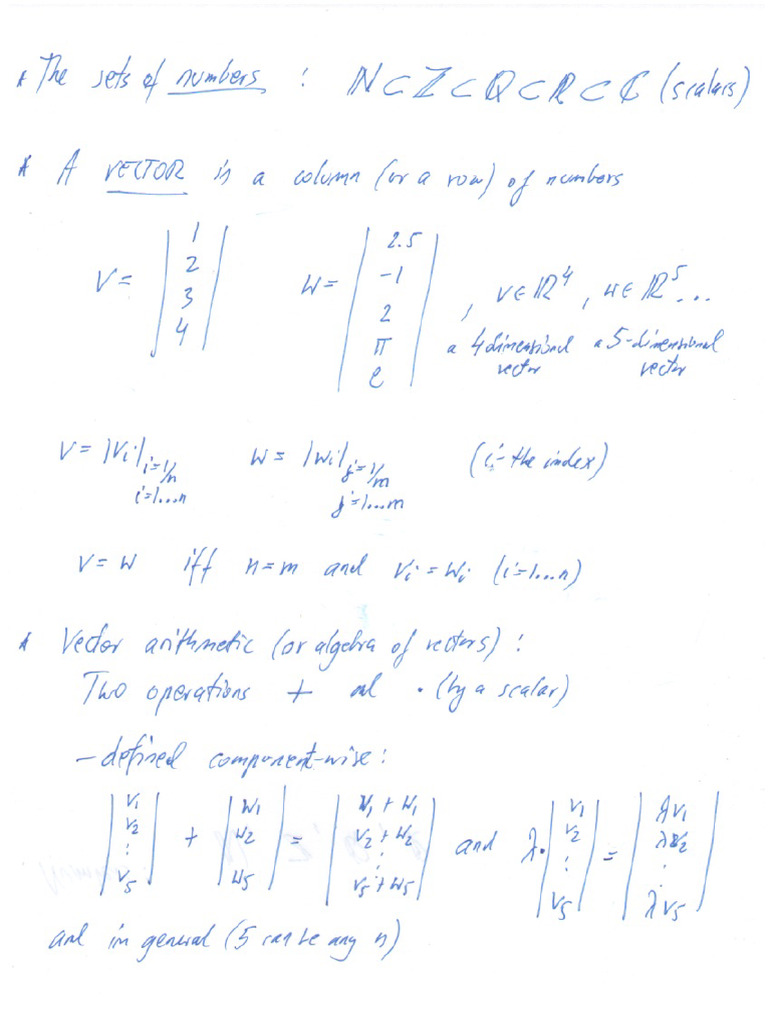 * The sets of numbers : ℕ ⊂ ℤ ⊂ ℚ ⊂ ℝ ⊂ ℂ (scalars)
* A VECTOR is a column (or a row) of numbers
v = |1 2 3 4| w = |2.5 -1 2 π e| , v ∈ ℝ⁴ , w ∈ ℝ⁵ ...
a 4 dimensional vector a 5-dimensional vector
v = |vi| i=1/n w = |wi| j=1/m (i - the index)
i=1...n j=1...m
v = w iff n = m and vi = wi (i=1...n)
* Vector arithmetic (or algebra of vectors) :
Two operations + and · (by a scalar)
- defined component-wise :
|v1 v2 ⋮ v5| + |w1 w2 w5| = |v1 + w1 v2 + w2 ⋮ v5 + w5| and λ · |v1 v2 ⋮ v5| = |λv1 λv2 ⋮ λv5|
and in general (5 can be any n)